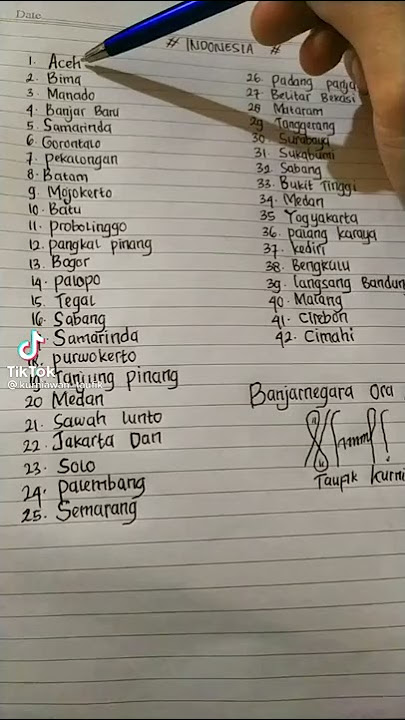 Date
# INDONESIA #
1. Aceh
2. Bima
3. Manado
4. Banjar Baru
5. Samarinda
6. Gorontalo
7. Pekalongan
8. Batam
9. Mojokerto
10. Batu
11. Probolinggo
12. Pangkal pinang
13. Bogor
14. Palopo
15. Tegal
16. Sabang
Samarinda
18. Purwokerto
19. Tanjung pinang
20 Medan
21. Sawah lunto
22. Jakarta Dan
23. Solo
24. Palembang
25. Semarang
26. Padang
27. Belitar Bekasi
28 Mataram
29 Tanggerang
30. Surabaya
31. Sukabumi
32. Sabang
33. Bukit Tinggi
34. Medan
35 Yogyakarta
36. Palang karaya
37. Kediri
38. Bengkulu
39. Langsang Bandun
40. Malang
41. Cirebon
42. Cimahi
Banjarnegara Ora
Taufik Kurni
TikTok
@.kurniawan_taufik